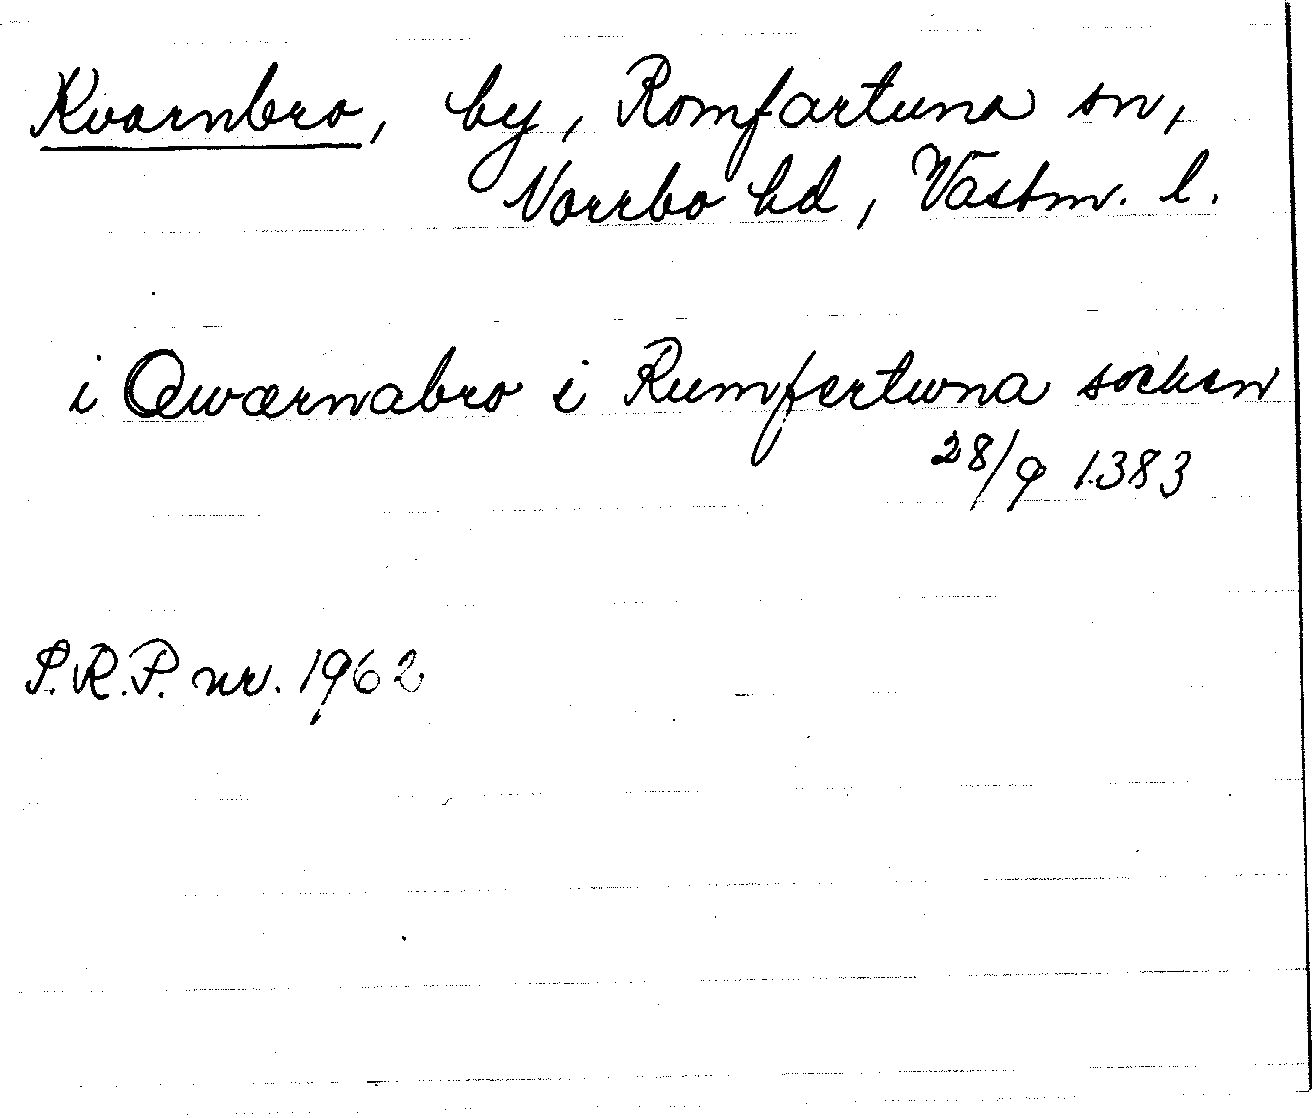 Kvarnbro, by, Romfartuna sn,
Norrbo hd, Västm. l.
i Qwærnabro i Rumfertwna sochen
28/9 1383
S.R.P. nr. 1962